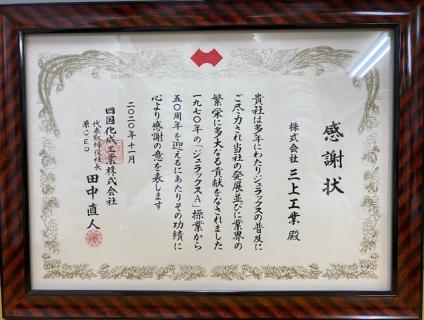 感謝状
株式会社 三上工業 殿
貴社は多年にわたりジュラックスの普及に
ご尽力され当社の発展並びに業界の
繁栄に多大なる貢献をなされました
一九七〇年の「ジュラックスA」操業から
五〇周年を迎えるにあたりその功績に
心より感謝の意を表します
二〇二〇年十一月
四国化成工業株式会社
代表取締役社長
兼CEO
田中直人